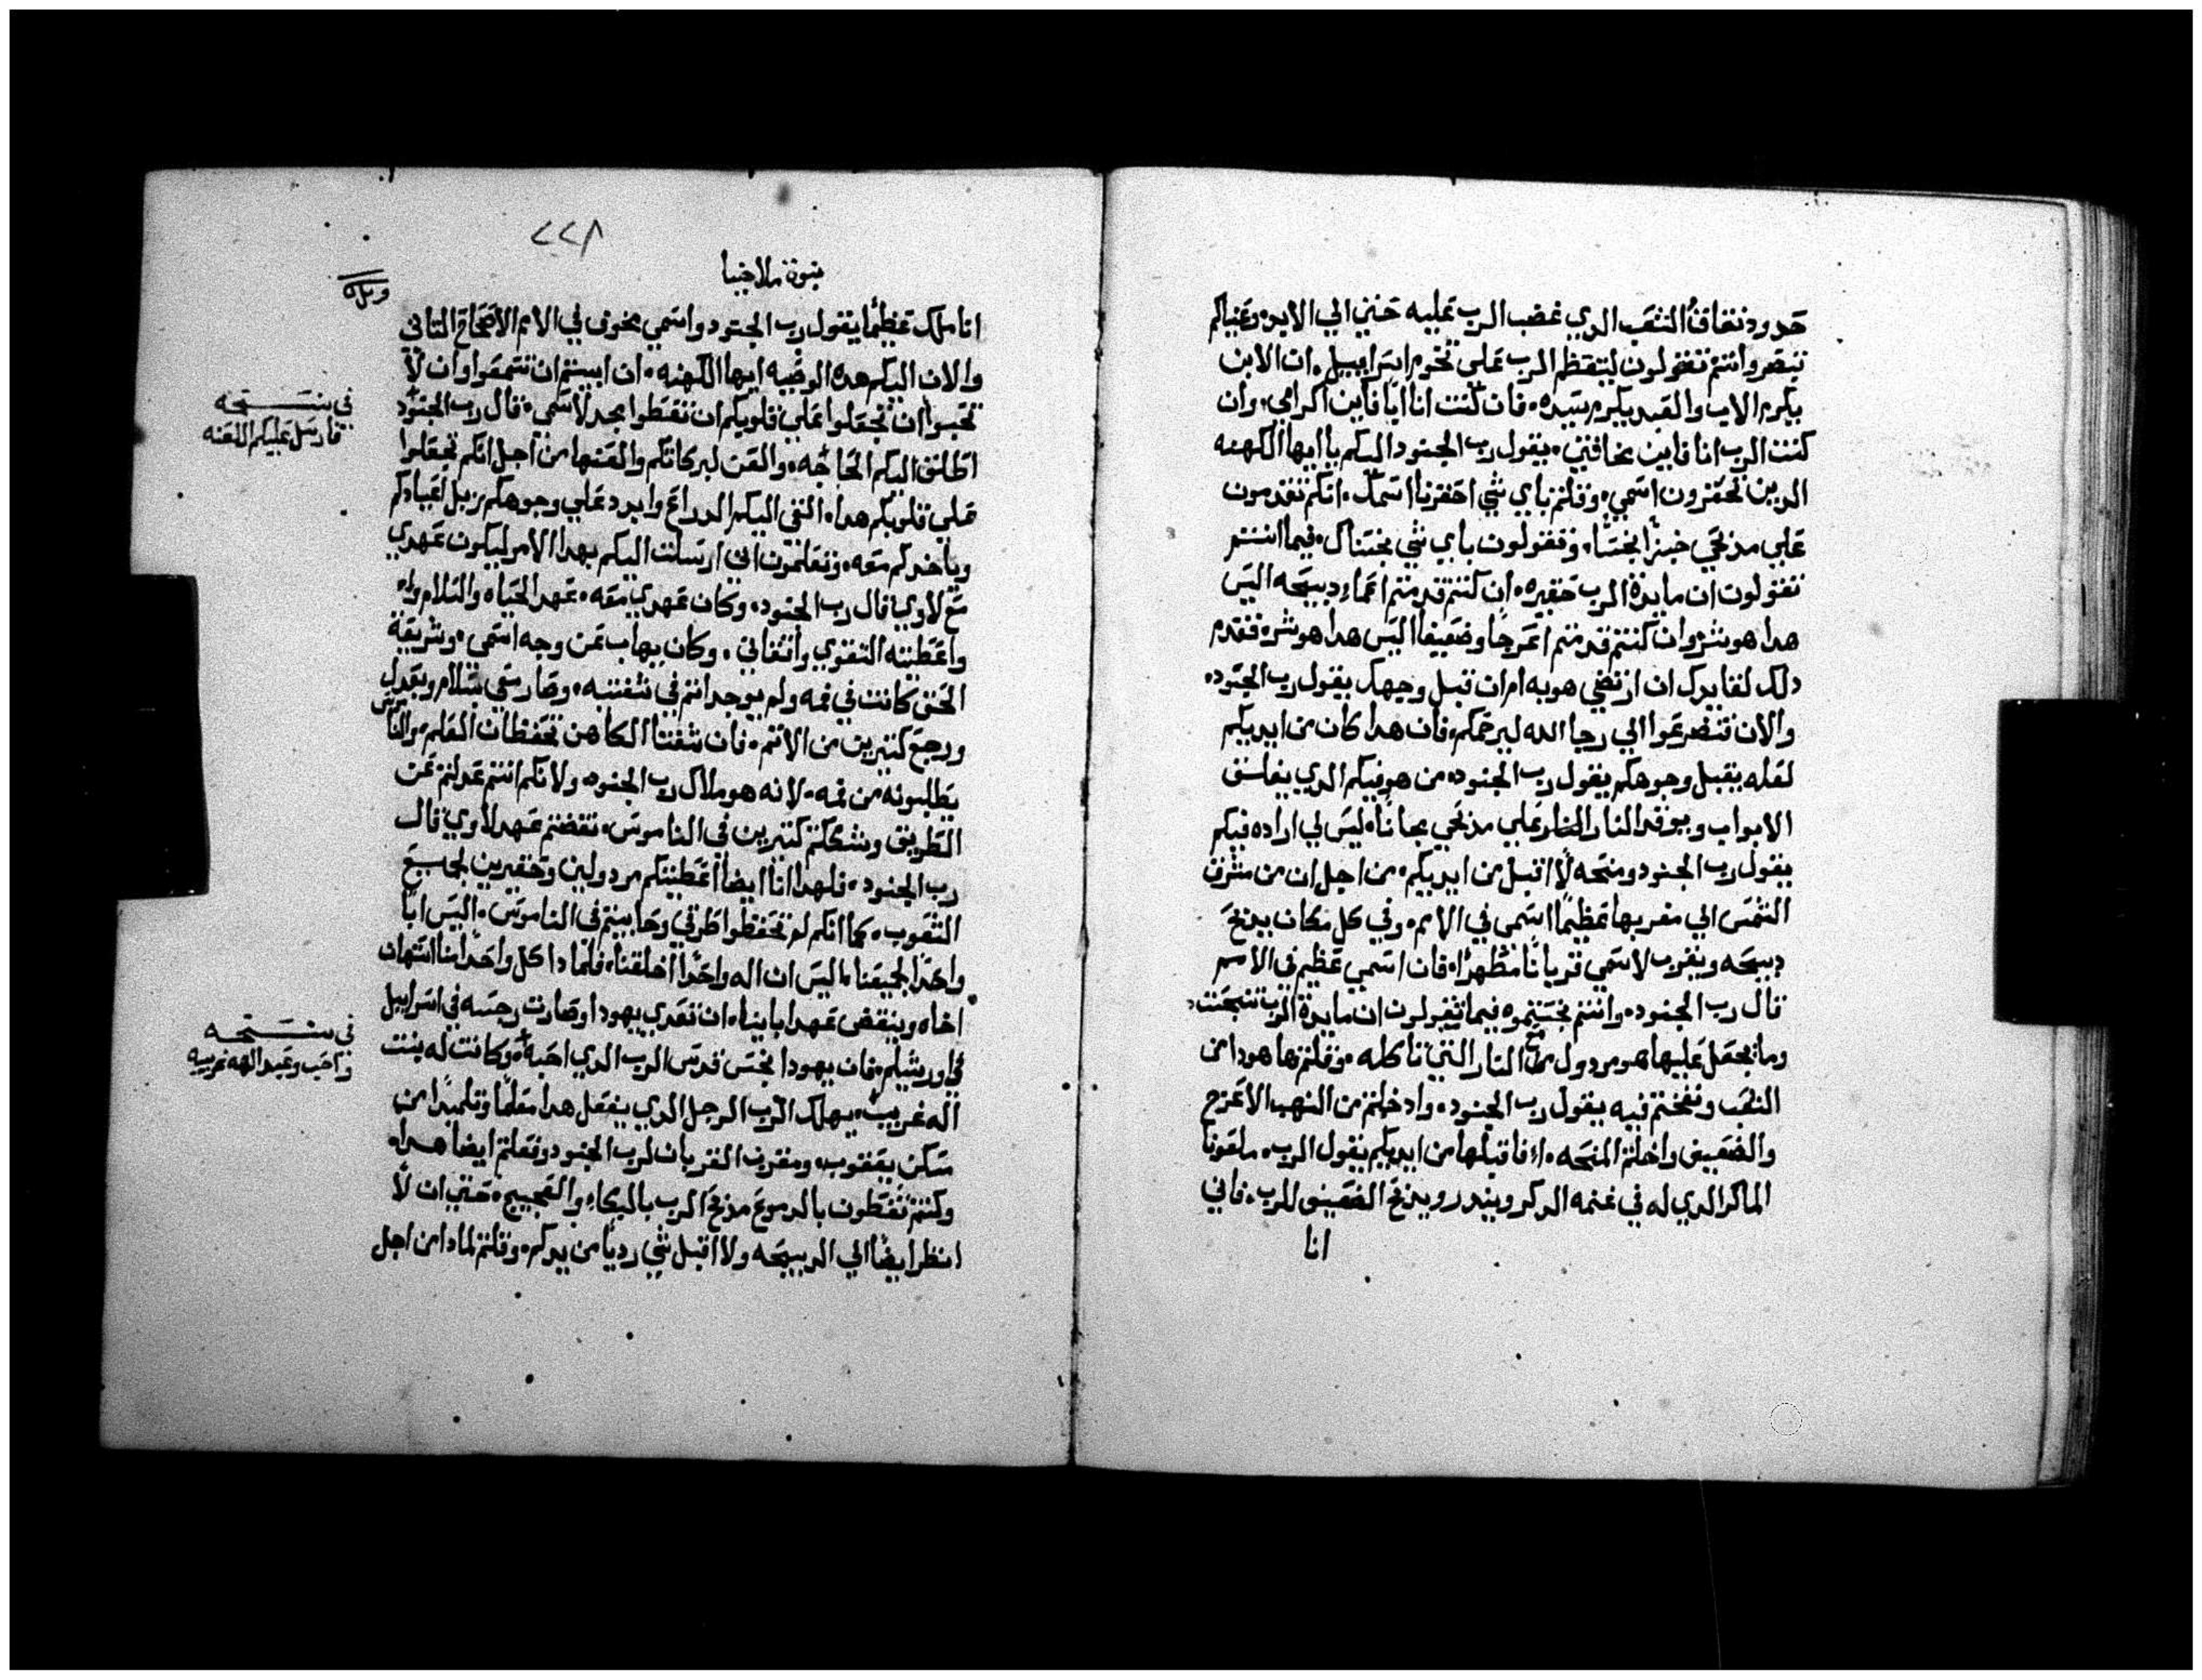 حدود نفاق الشعب الدي غضب الرب عليه حتي الي الابد، وعنياكم
تبصر وانتم تقولون ليتعظم الرب علي تخوم اسراييل، ان الابن
يكرم الاب والعبد يكرم سيده، فان كنت انا ابا فاين اكرامي، وان
كنت الرب انا فاين مخافتي، يقول رب الجنود اليكم يا ايها الكهنه
الدين تحقرون اسمي، وقلتم باي شي احقرنا اسمك، انكم تقدمون
علي مذبحي خبزا نجسا، وتقولون باي شي نجسناك، فيما انتم
تقولون ان مايدة الرب حقيره، ان كنتم قدمتم اعماء دبيحه اليس
هدا هو شر وان كنتم قدمتم اعرجا وضعيفا اليس هدا هو شر، فقدم
دلك لقايدك ان ارتضي هو به ام ان قبل وجهك يقول رب الجنود،
والان فتضرعوا الي رجا الله ليرحمكم، فان هدا كان من ايديكم
لعله يقبل وجوهكم يقول رب الجنود، من هو فيكم الدي يغلق
الابواب ويوقد النار علي مذبحي مجانا، ليس لي اراده فيكم
يقول رب الجنود ومنحه لا اقبل من ايديكم، من اجل ان من مشرق
الشمس الي مغربها عظيما اسمي في الامم، وفي كل مكان يدبح
دبيحه ويقرب لاسمي قربانا مطهرا، فان اسمي عظيم في الامم
قال رب الجنود، وانتم نجستموه فيما تقولون ان مايدة الرب تنجست،
وما يجعل عليها هو مردول مع النار التي تاكله، وقلتم ها هودا من
التعب ونفختم فيه يقول رب الجنود، وادخلتم من النهب الاعرج
والضعيف وادخلتم المنحه، افاقبلها من ايديكم يقول الرب، ملعونا
الماكر الدي له في غنمه الدكر ويندر ويدبح الضعيف للرب، فاني
انا
٢٢٨
نبوة ملاخيا
انا ملك عظيما يقول رب الجنود واسمي مخوف في الامم الاصحاح التاني
والان اليكم هده الوصيه ايها الكهنه، ان ابيتم ان تسمعوا وان لا
تحبوا ان تجعلوا علي قلوبكم ان تعطوا مجد لاسمي، قال رب الجنود
اطلق اليكم الحاجه، والعن لبركاتكم والعنها من اجل انكم تجعلوا
علي قلوبكم هدا، القي اليكم الدراع وابدد علي وجوهكم زبل اعيادكم
وياخدكم معه، وتعلمون اني ارسلت اليكم بهدا الامر ليكون عهدي
مع لاوي قال رب الجنود، وكان عهدي معه، عهد الحياه والسلام
واعطيته التقوي واتقاني، وكان يهاب عن وجه اسمي، وشريعة
الحق كانت في فمه ولم يوجد اتم في شفتيه، وصار معي بسلام وبعدل
ورجع كتيرين من الاتم، فان شفتا الكاهن تحفظان العلم، والناموس
يطلبونه من فمه، لانه هو ملاك رب الجنود، ولانكم انتم عدلتم عن
الطريق وشككتم كتيرين في الناموس، نقضتم عهد لاوي قال
رب الجنود، فلهدا انا ايضا اعطيتكم مردولين وحقيرين لجميع
الشعوب، كما انكم لم تحفظوا طرقي وحابيتم في الناموس، اليس ابا
واحدا لجميعنا، اليس ان اله واحدا خلقنا، فلمادا كل واحد منا استهان
اخاه وينقض عهد اباينا، ان تعدي يهودا وصارت رجسه في اسراييل
وفي اورشليم، فان يهودا نجس قدس الرب الدي احبه، وكانت له بنت
اله غريب، يهلك الرب الرجل الدي يفعل هدا معلما وتلميدا من
مسكن يعقوب، ومقرب القربان لرب الجنود وفعلتم ايضا هدا،
وكنتم تغطون بالدموع مذبح الرب بالبكاء والعجيج، حتي ان لا
انظر ايضا الي الدبيحه ولا اقبل شي رديا من يدكم، وقلتم لمادا من اجل
في نسخه
فارسل عليكم اللعنه
في نسخه
واحب وعبد الهه غريبه